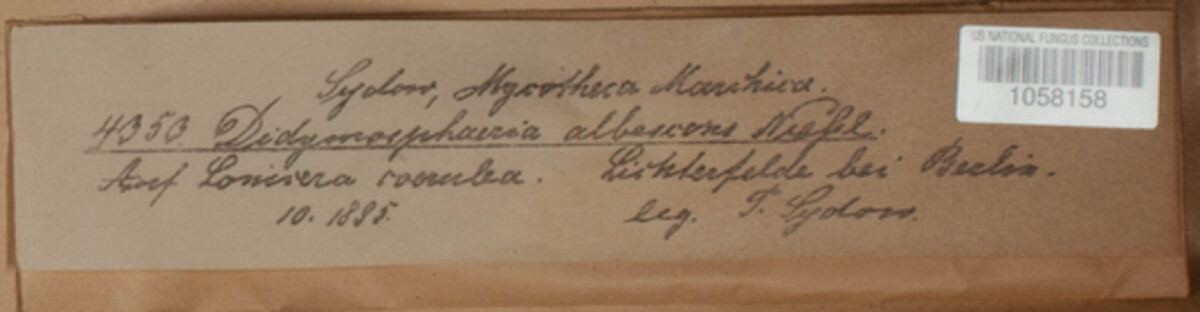 US NATIONAL FUNGUS COLLECTIONS
1058158
Sydow, Mycotheca Marchica.
4350 Didymosphaeria albescens Niessl.
Auf Lonicera coerulea. Lichterfelde bei Berlin.
10. 1895. leg. P. Sydow.